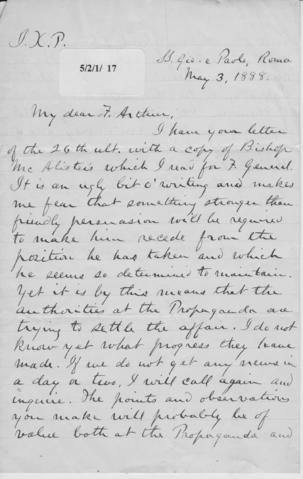 J. X. P.
5/2/1/ 17
SS. Gio. e Paolo, Roma
May 3, 1888.
My dear F. Arthur,
I have your letter
of the 26th ult. with a copy of Bishop
Mc Alister's which I read for F. General.
It is an ugly bit o' writing and makes
me fear that something stronger than
friendly persuasion will be required
to make him recede from the
position he has taken and which
he seems so determined to maintain.
Yet it is by this means that the
authorities at the Propaganda are
trying to settle the affair. I do not
know yet what progress they have
made. If we do not get any news in
a day or two, I will call again and
inquire. The points and observations
you make will probably be of
value both at the Propaganda and